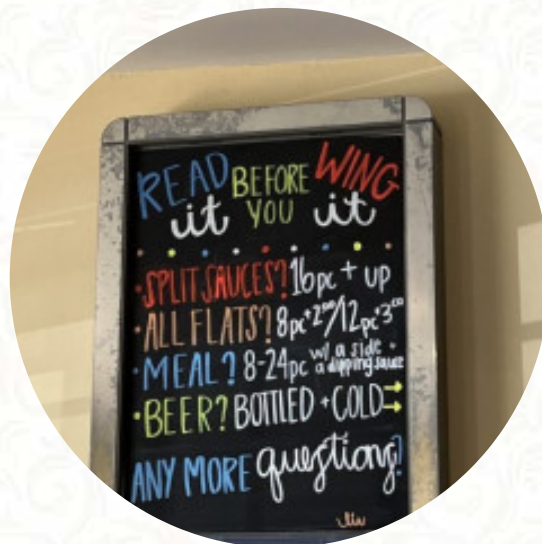 READ BEFORE WING
it YOU it
• SPLIT SAUCES? 16pc + up
• ALL FLATS? 8pc+2⁰⁰/12pc+3⁰⁰
• MEAL? 8-24pc w/ a side + a dipping sauce
• BEER? BOTTLED + COLD
ANY MORE questions?